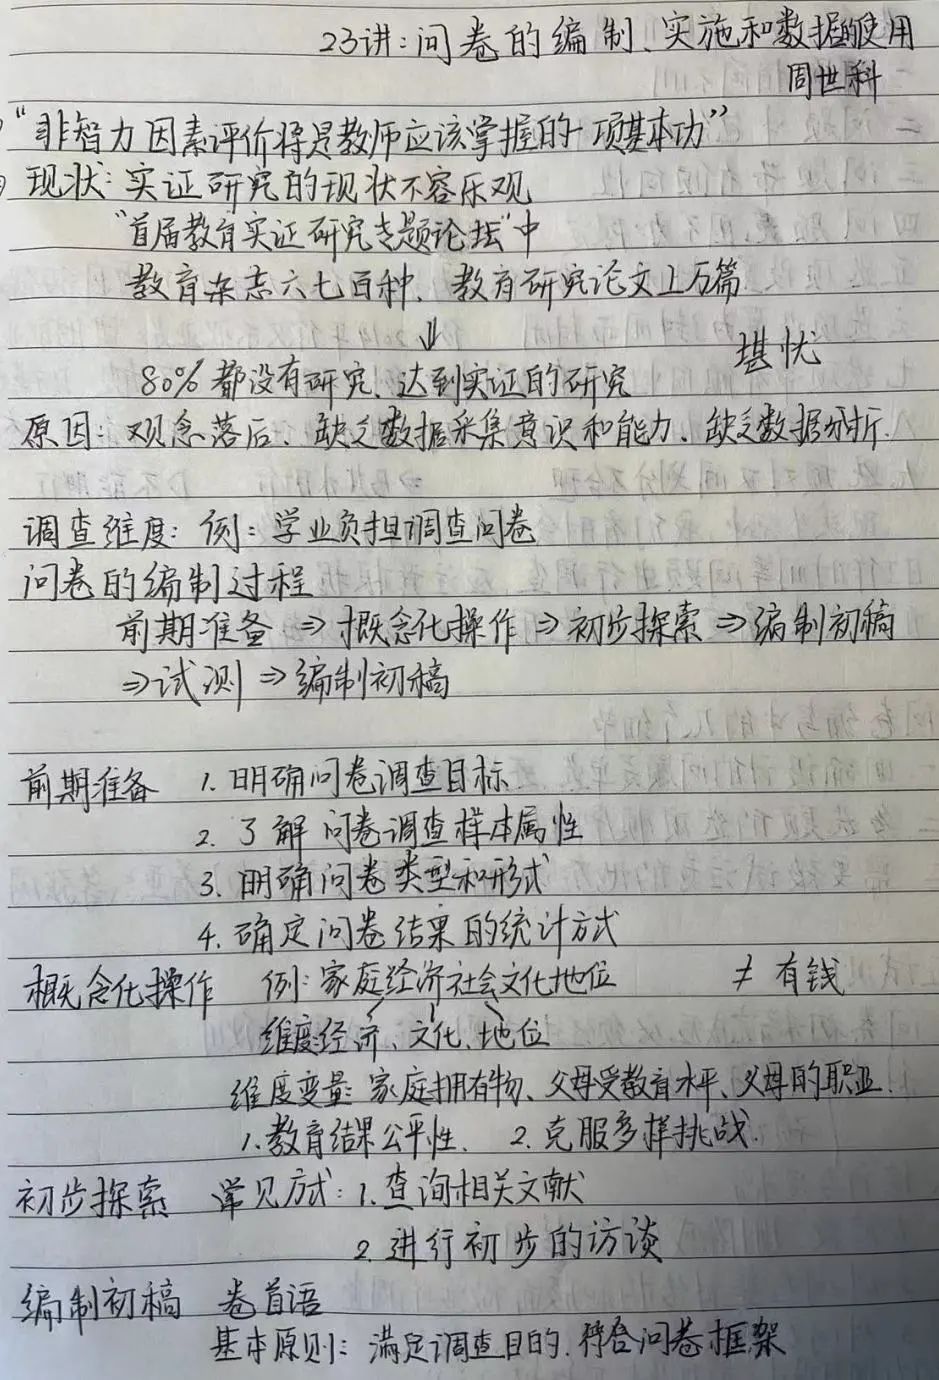 23讲:问卷的编制、实施和数据的使用
周世科
“非智力因素评价将是教师应该掌握的一项基本功”
现状:实证研究的现状不容乐观
“首届教育实证研究专题论坛”中
教育杂志六七百种、教育研究论文上万篇
⇓
堪忧
80%都没有研究、达到实证的研究
原因:观念落后、缺乏数据采集意识和能力、缺乏数据分析.
调查维度:例:学业负担调查问卷
问卷的编制过程
前期准备⇒概念化操作⇒初步探索⇒编制初稿
⇒试测⇒编制初稿
前期准备 1.明确问卷调查目标
2.了解问卷调查样本属性
3.明确问卷类型和形式
4.确定问卷结果的统计方式
概念化操作 例:家庭经济社会文化地位 ≠有钱
维度:经济、文化、地位
维度变量:家庭拥有物、父母受教育水平、父母的职业.
1.教育结果公平性. 2.克服多样挑战.
初步探索 常见方式:1.查询相关文献
2.进行初步的访谈
编制初稿 卷首语
基本原则:满足调查目的.符合问卷框架